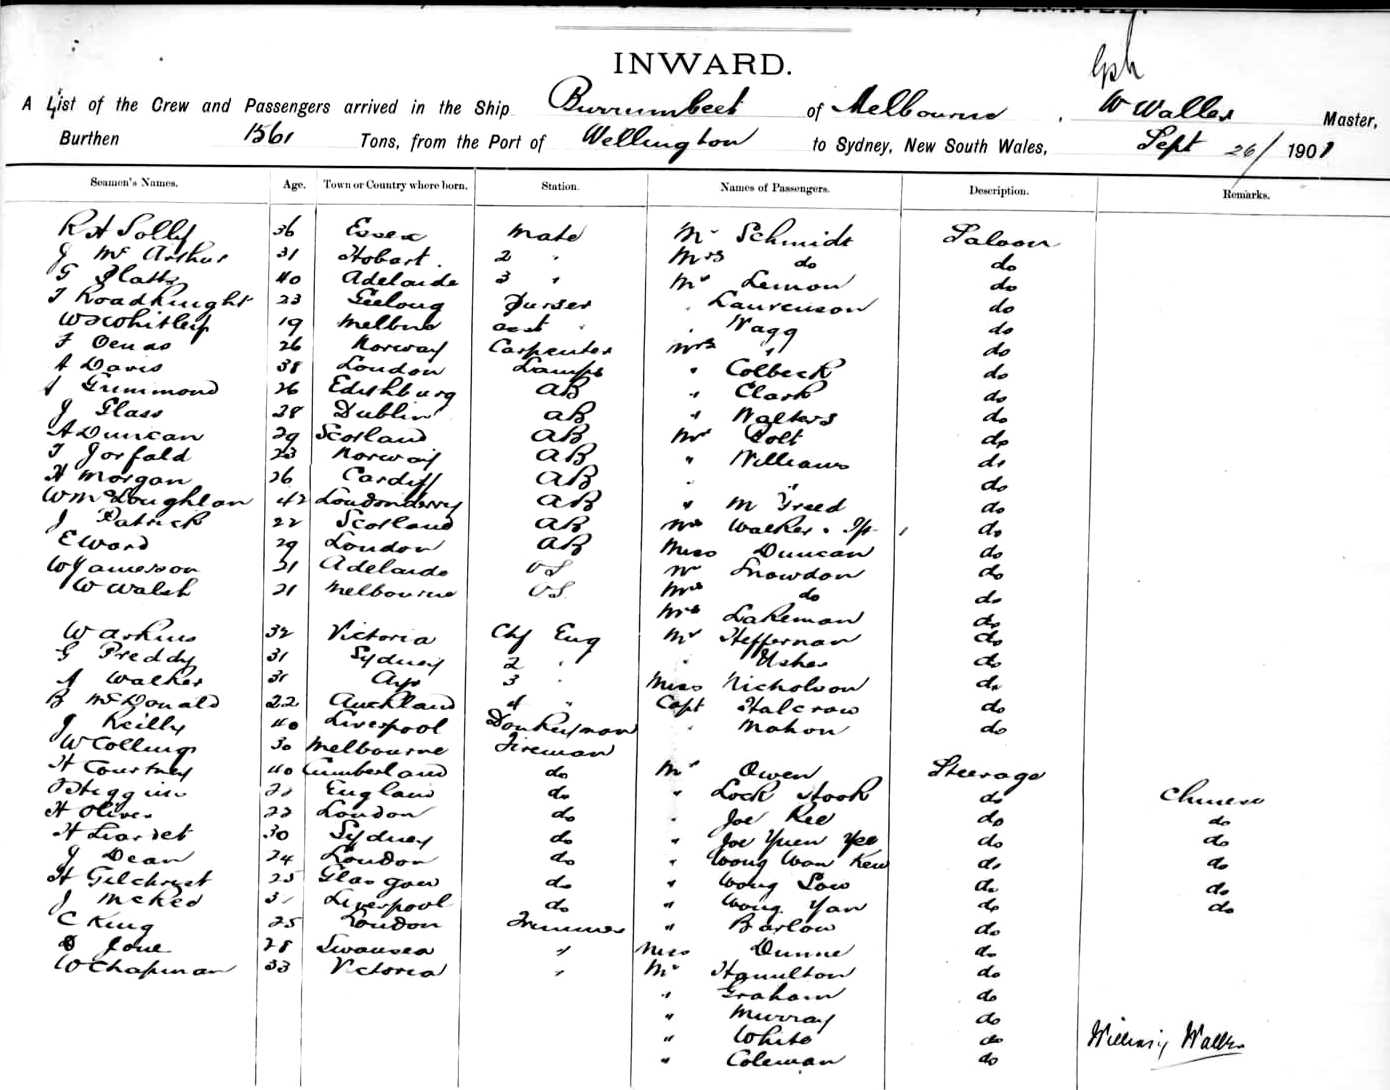 INWARD.
A List of the Crew and Passengers arrived in the Ship Burrumbeet of Melbourne, W Waller Master,
Burthen 1561 Tons, from the Port of Wellington to Sydney, New South Wales, Sept 26/ 1901
Seamen's Names. Age. Town or Country where born. Station. Names of Passengers. Description. Remarks.
R H Solly 36 Essex Mate Mr Schmidt Saloon
J McArthur 31 Hobart. 2 " Mrs do do
G Platts 40 Adelaide 3 " Mr Lemon do
T Roadknight 23 Geelong Purser " Laurenson do
Whitley 19 Melbne asst " " Wagg do
F 26 Norway Carpenter Mrs " do
A Davis 38 London Lamps " Colbeck do
J Grimmond 26 Edithburg AB " Clark do
J Glass 28 Dublin AB " Walters do
A Duncan 29 Scotland AB Mr Colt do
T Jorfald 23 Norway AB " Williams do
H Morgan 26 Cardiff AB " " do
W McLoughlan 42 Londonderry AB " M Greed do
J Patrick 22 Scotland AB Walker do
E Ward 29 London AB Miss Duncan do
W Jamesson 21 Adelaide OS Mr Snowdon do
W Walsh 21 Melbourne OS Mrs do do
Mrs Lakeman do
W Askins 32 Victoria Chf Eng Mr Heffernan do
G Preddy 31 Sydney 2 " " Usher do
A Walker 31 Ayr 3 " Miss Nicholson do
B McDonald 22 Auckland 4 " Capt Halcrow do
J Reilly 40 Liverpool Donkeyman " Mahon do
W Collings 30 Melbourne Fireman
H Courtney 40 Cumberland do Mr Owen Steerage
Higgins England do " Lock Hook do Chinese
H Oliver 22 London do " Joe Kee do do
H Liardet 30 Sydney do " Joe Yuen Yee do do
J Dean 24 London do " Wong Wan Kew do do
H Gilchrist 25 Glasgow do " Wong Low do do
J McKeo 31 Liverpool do " Wong Yan do do
C King 25 London Trimmer " Barlow do
28 Swansea " Miss Dunne do
W Chapman 33 Victoria " Mr Hamilton do
" Graham do
" Murray do
" White do William Waller
" Coleman do